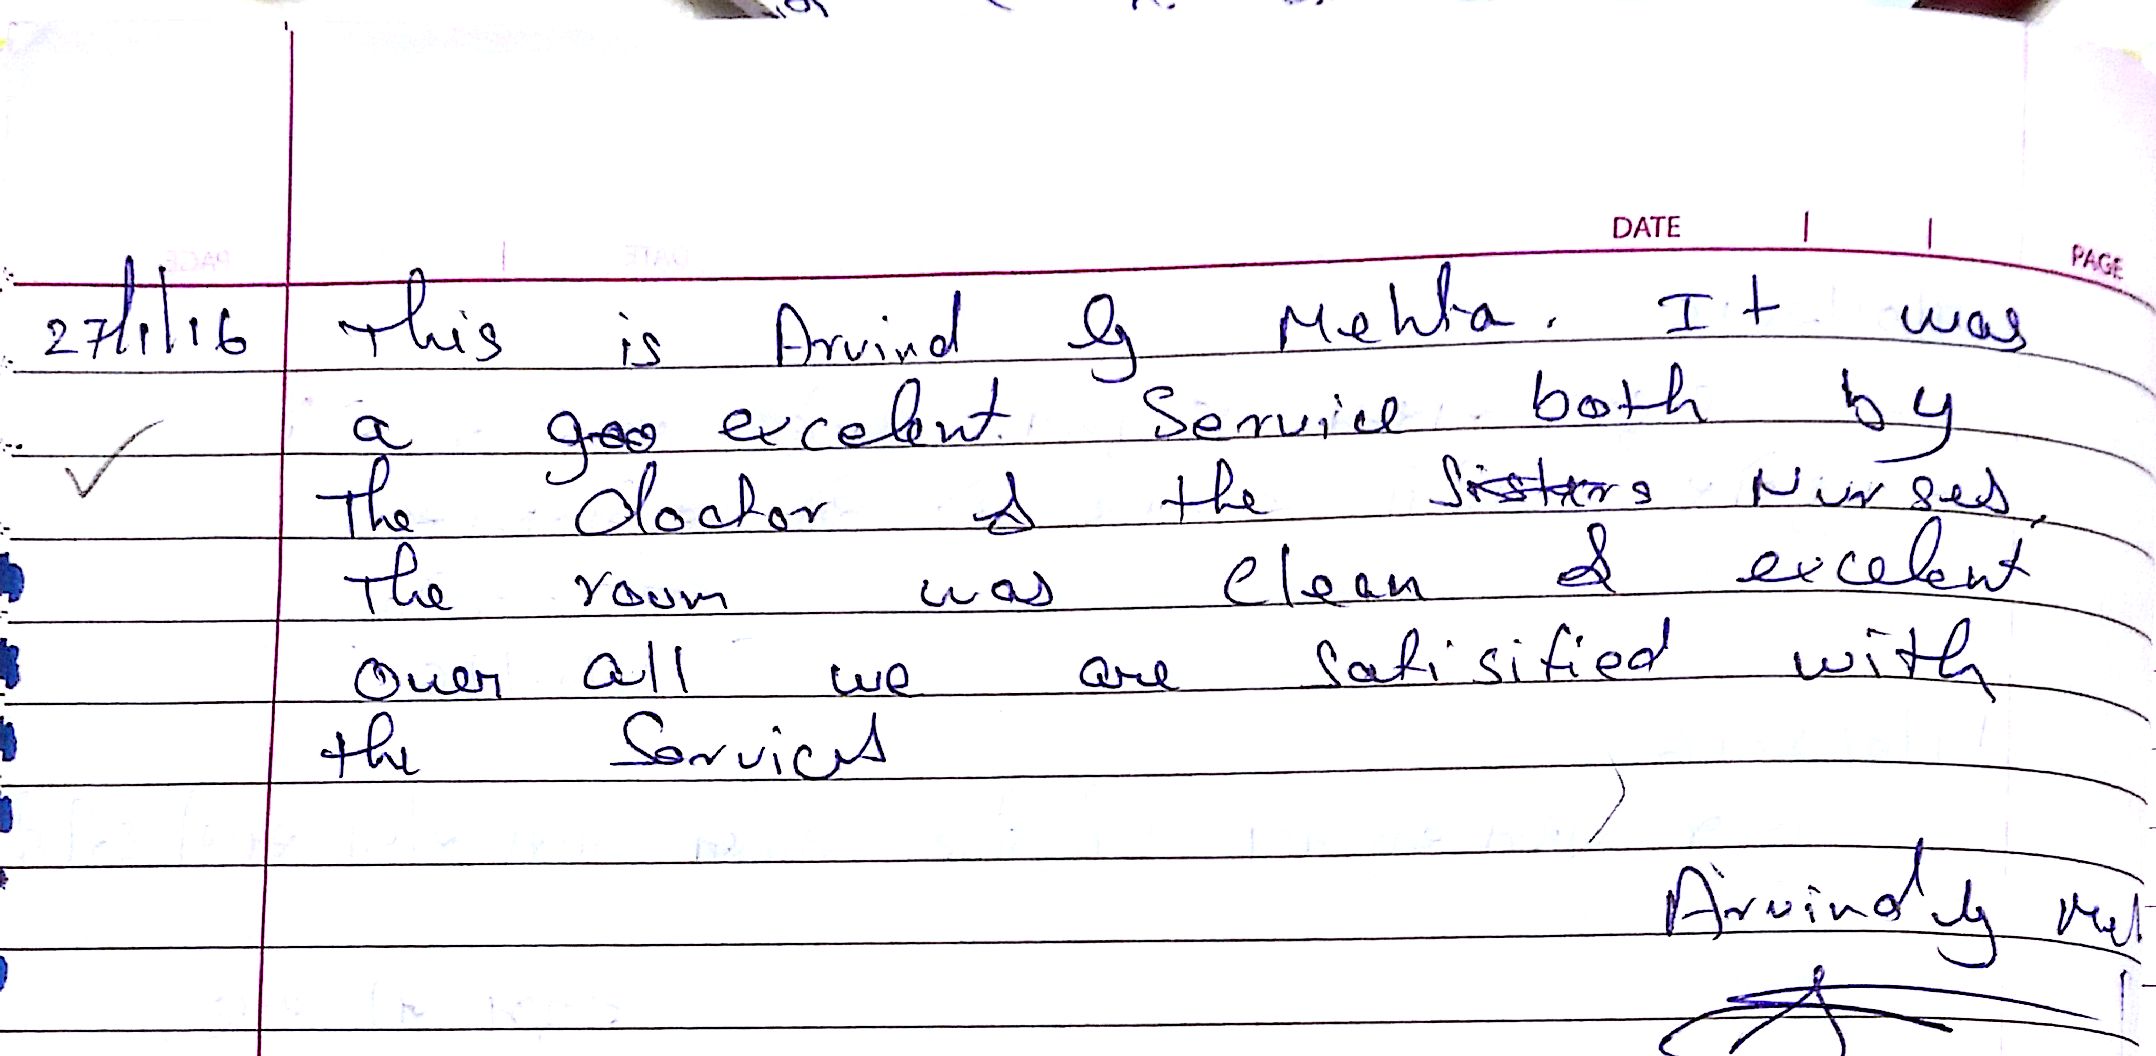 DATE
PAGE
27/1/16 This is Arvind G Mehta. It was
a goo excelent Service both by
The doctor & the Sisters Nurses.
The room was Clean & excelent
over all we are Satisified with
the Services
Arvind G Meh